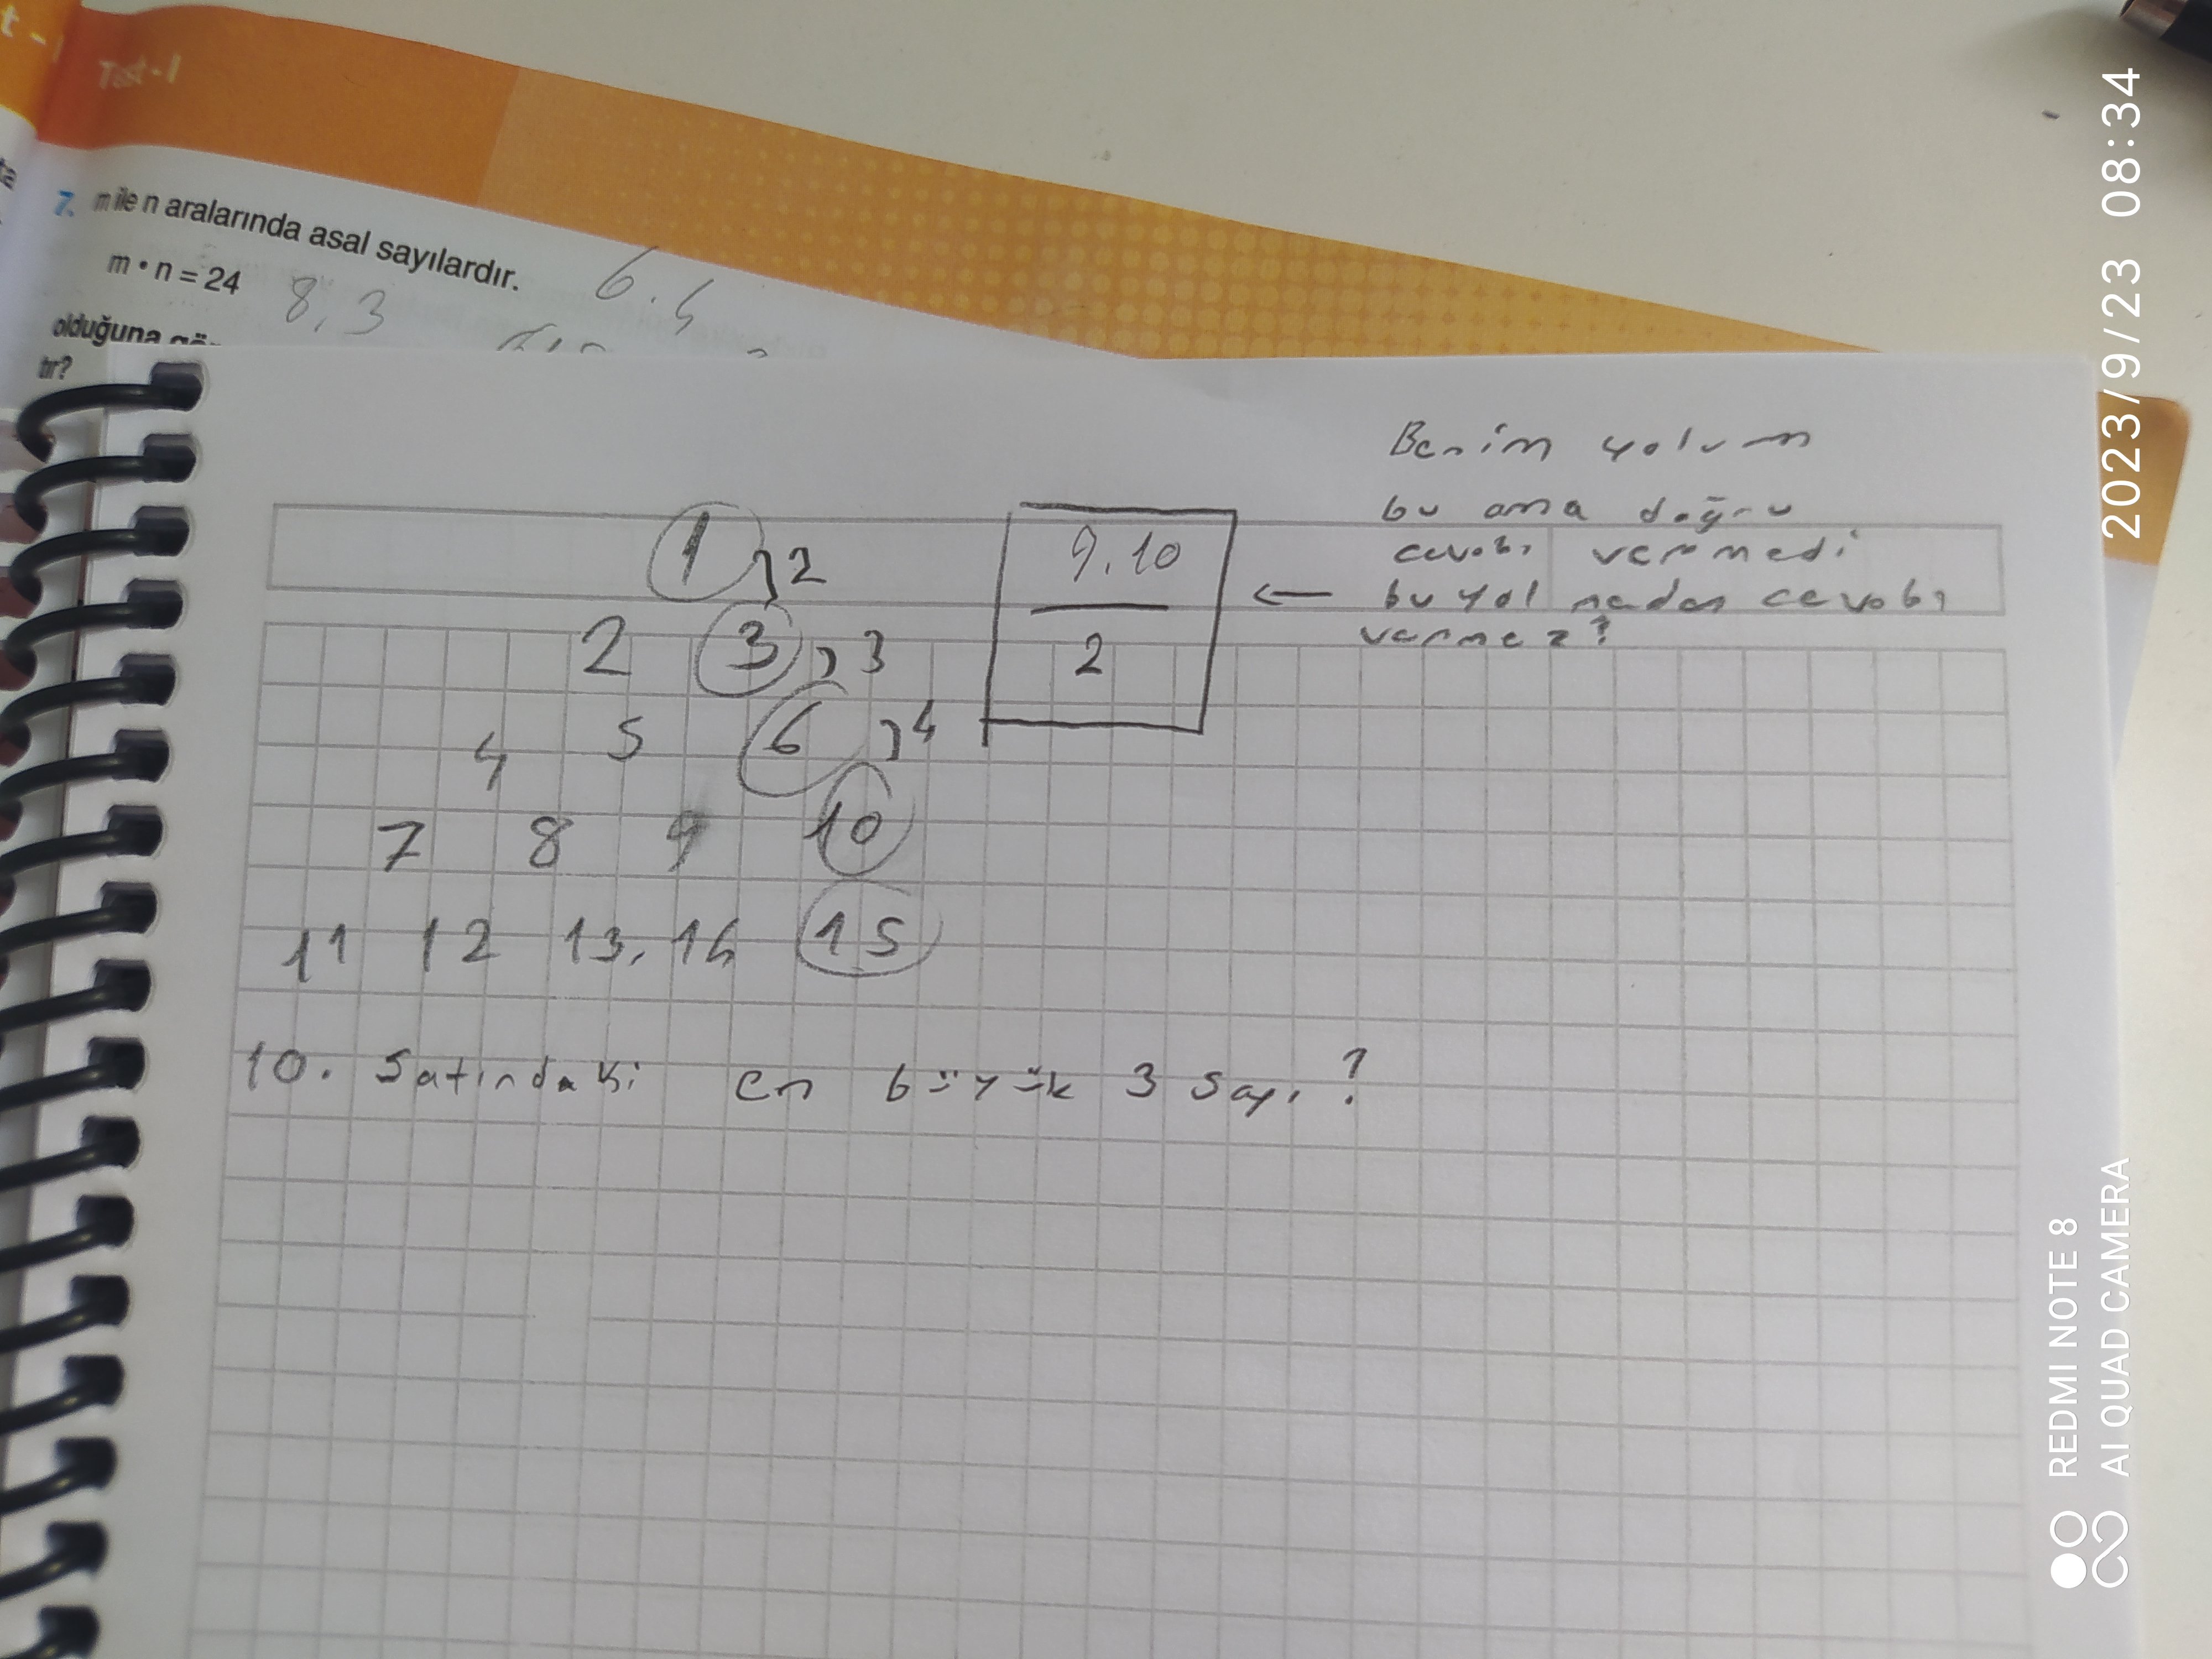 Test-1
7. m ile n aralarında asal sayılardır.
m • n = 24
8, 3
6.4
olduğuna gör
tır?
Benim yolum
bu ama doğru
cevabı vermedi
bu yol neden cevabı
vermez?
←
9.10
2
1 2
2 3 3
4 5 6 4
7 8 9 10
11 12 13, 14 15
10. Satırdaki en büyük 3 sayı?
2023/9/23 08:34
REDMI NOTE 8
AI QUAD CAMERA